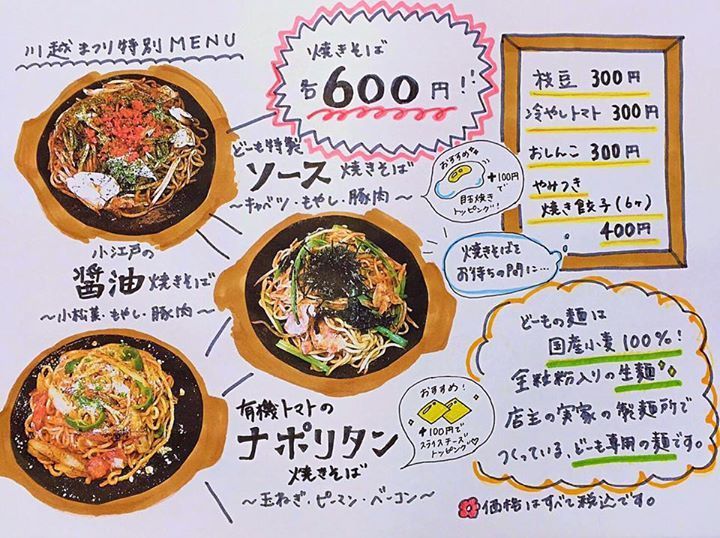 川越まつり特別MENU
焼きそば
各600円!!
どーも特製
ソース焼きそば
～キャベツ・もやし・豚肉～
おすすめ
+100円
で
目玉焼き
トッピング!
小江戸の
醤油焼きそば
～小松菜・もやし・豚肉～
有機トマトの
ナポリタン
焼きそば
～玉ねぎ・ピーマン・ベーコン～
おすすめ!
+100円で
スライスチーズ
トッピング♡
枝豆 300円
冷やしトマト 300円
おしんこ 300円
やみつき
焼き餃子(6ヶ)
400円
焼きそばを
お待ちの間に…
どーもの麺は
国産小麦100%!
全粒粉入りの生麺
店主の実家の製麺所で
つくっている、どーも専用の麺です。
価格はすべて税込です。